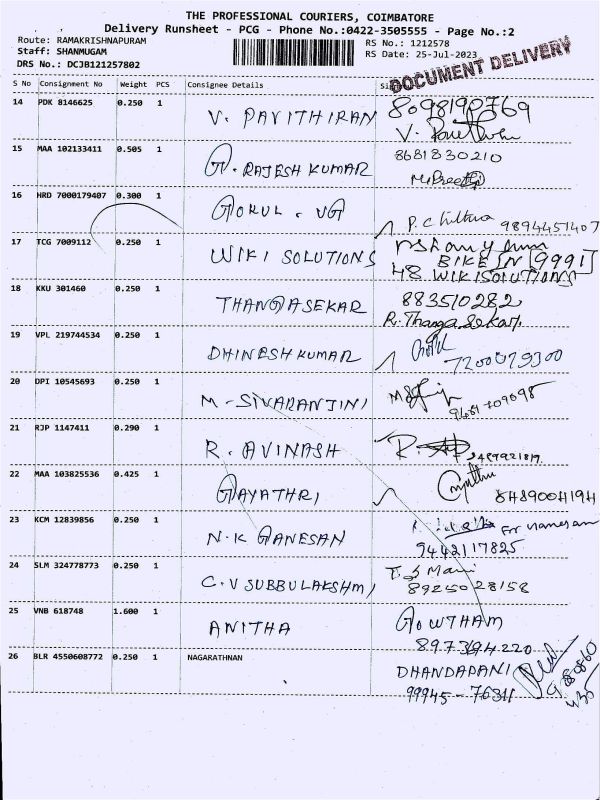 THE PROFESSIONAL COURIERS, COIMBATORE
Delivery Runsheet - PCG - Phone No.:0422-3505555 - Page No.:2
Route: RAMAKRISHNAPURAM
RS No.: 1212578
Staff: SHANMUGAM
RS Date: 25-Jul-2023
DRS No.: DCJB121257802
DOCUMENT DELIVERY
S No Consignment No Weight PCS Consignee Details
14 PDK 8146625 0.250 1 V. PAVITHIRAN 8098190769
15 MAA 102133411 0.505 1 G. RAJESH KUMAR 8681830210
16 HRD 7000179407 0.300 1 GOKUL. VG 9894451407
17 TCG 7009112 0.250 1 WIKI SOLUTIONS
BIKE IN [9991]
48 WIKISOLUTIONS
18 KKU 301460 0.250 1 THANGASEKAR 883510282
R. Thangasekar.
19 VPL 219744534 0.250 1 DHINESH KUMAR
7200079300
20 DPI 10545693 0.250 1 M-SIVARANJINI
21 RJP 1147411 0.290 1 R. AVINASH
22 MAA 103825536 0.425 1 GAYATHRI
8489004194
23 KCM 12839856 0.250 1 N.K GANESAN
9442117825
24 SLM 324778773 0.250 1 C.V SUBBULAKSHMI T S Mani
8925028158
25 VNB 618748 1.600 1 ANITHA GOWTHAM
897394220
26 BLR 4550608772 0.250 1 NAGARATHNAN DHANDAPANI
99945-76311